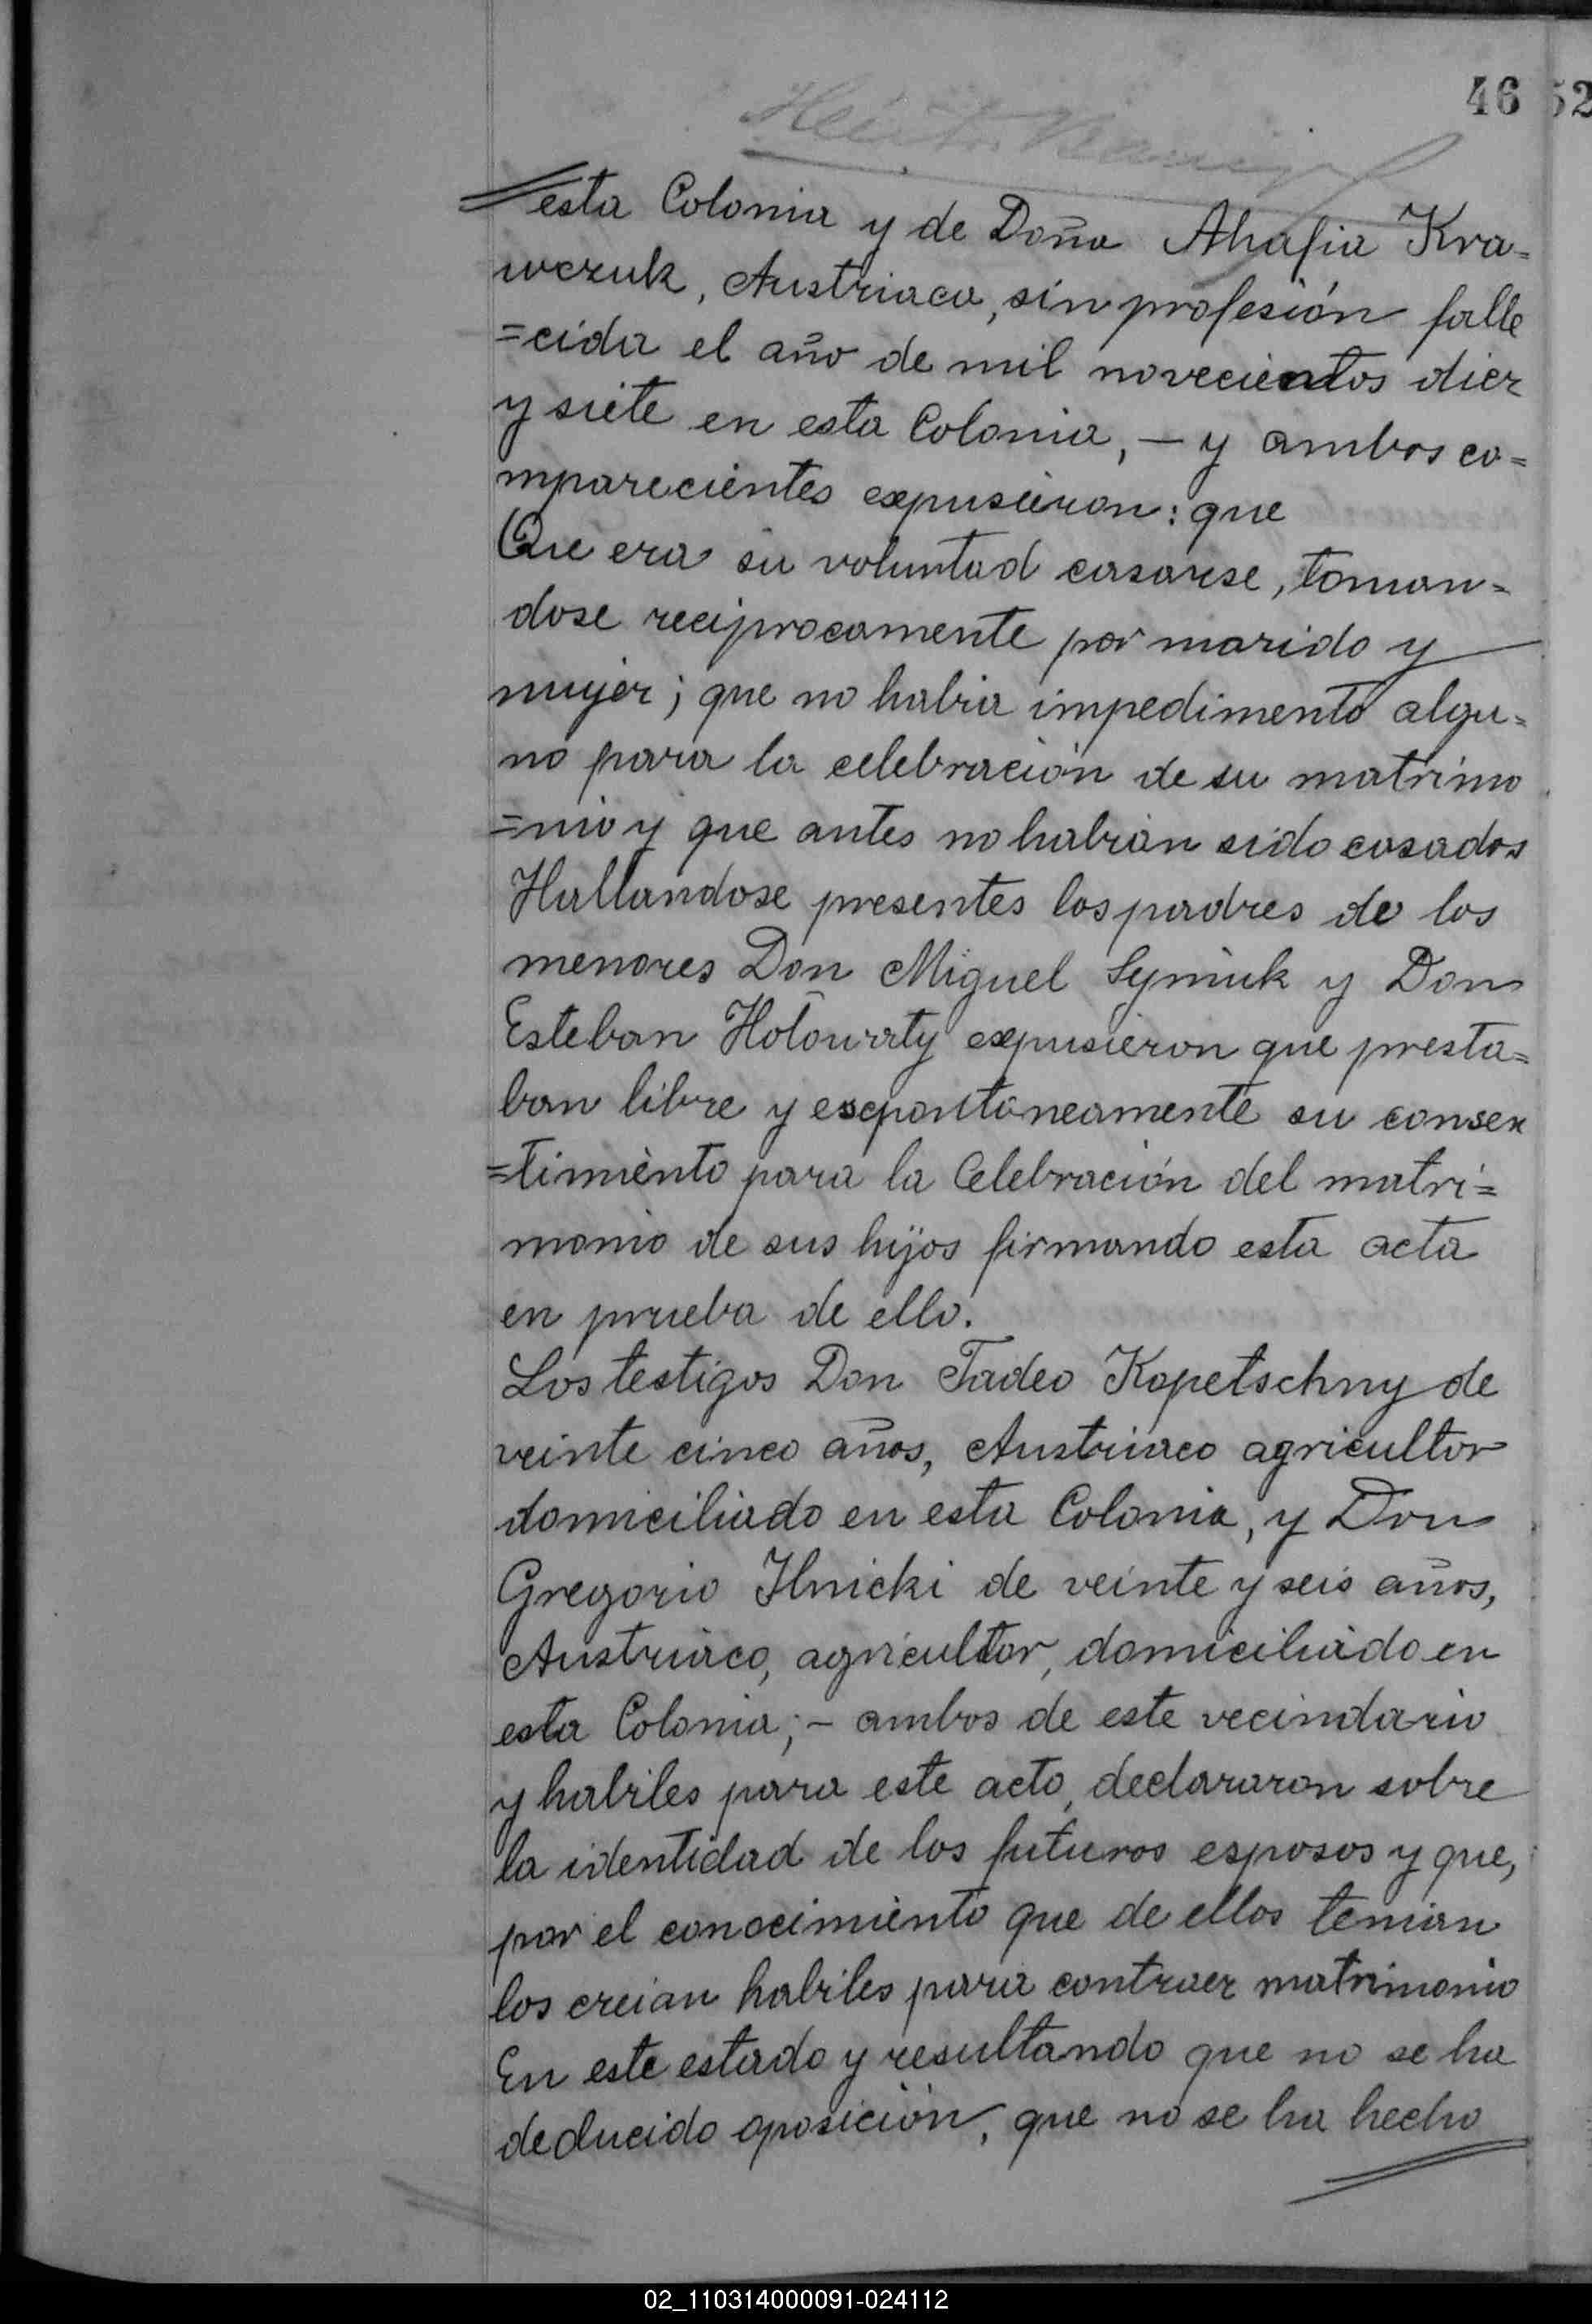 46 52
esta Colonia y de Doña Ahafia Kra=
wczuk, Austriaca, sin profesión falle
=cida el año de mil novecientos diez
y siete en esta Colonia, — y ambos co=
mparecientes expusieron: que
Que era su voluntad casarse, toman=
dose reciprocamente por marido y
mujer; que no habia impedimento algu=
no para la celebración de su matrimo
=nio y que antes no habian sido casados
Hallandose presentes los padres de los
menores Don Miguel Symiuk y Don
Esteban Holowaty expusieron que presta=
ban libre y espontaneamente su consen
=timiento para la Celebración del matri=
monio de sus hijos firmando esta acta
en prueba de ello.
Los testigos Don Tadeo Kopetschny de
veinte cinco años, Austriaco agricultor
domiciliado en esta Colonia, y Don
Gregorio Ilnicki de veinte y seis años,
Austriaco, agricultor, domiciliado en
esta Colonia; – ambos de este vecindario
y habiles para este acto, declararon sobre
la identidad de los futuros esposos y que,
por el conocimiento que de ellos tenian
los creian habiles para contraer matrimonio
En este estado y resultando que no se ha
deducido oposición, que no se ha hecho
02_110314000091-024112